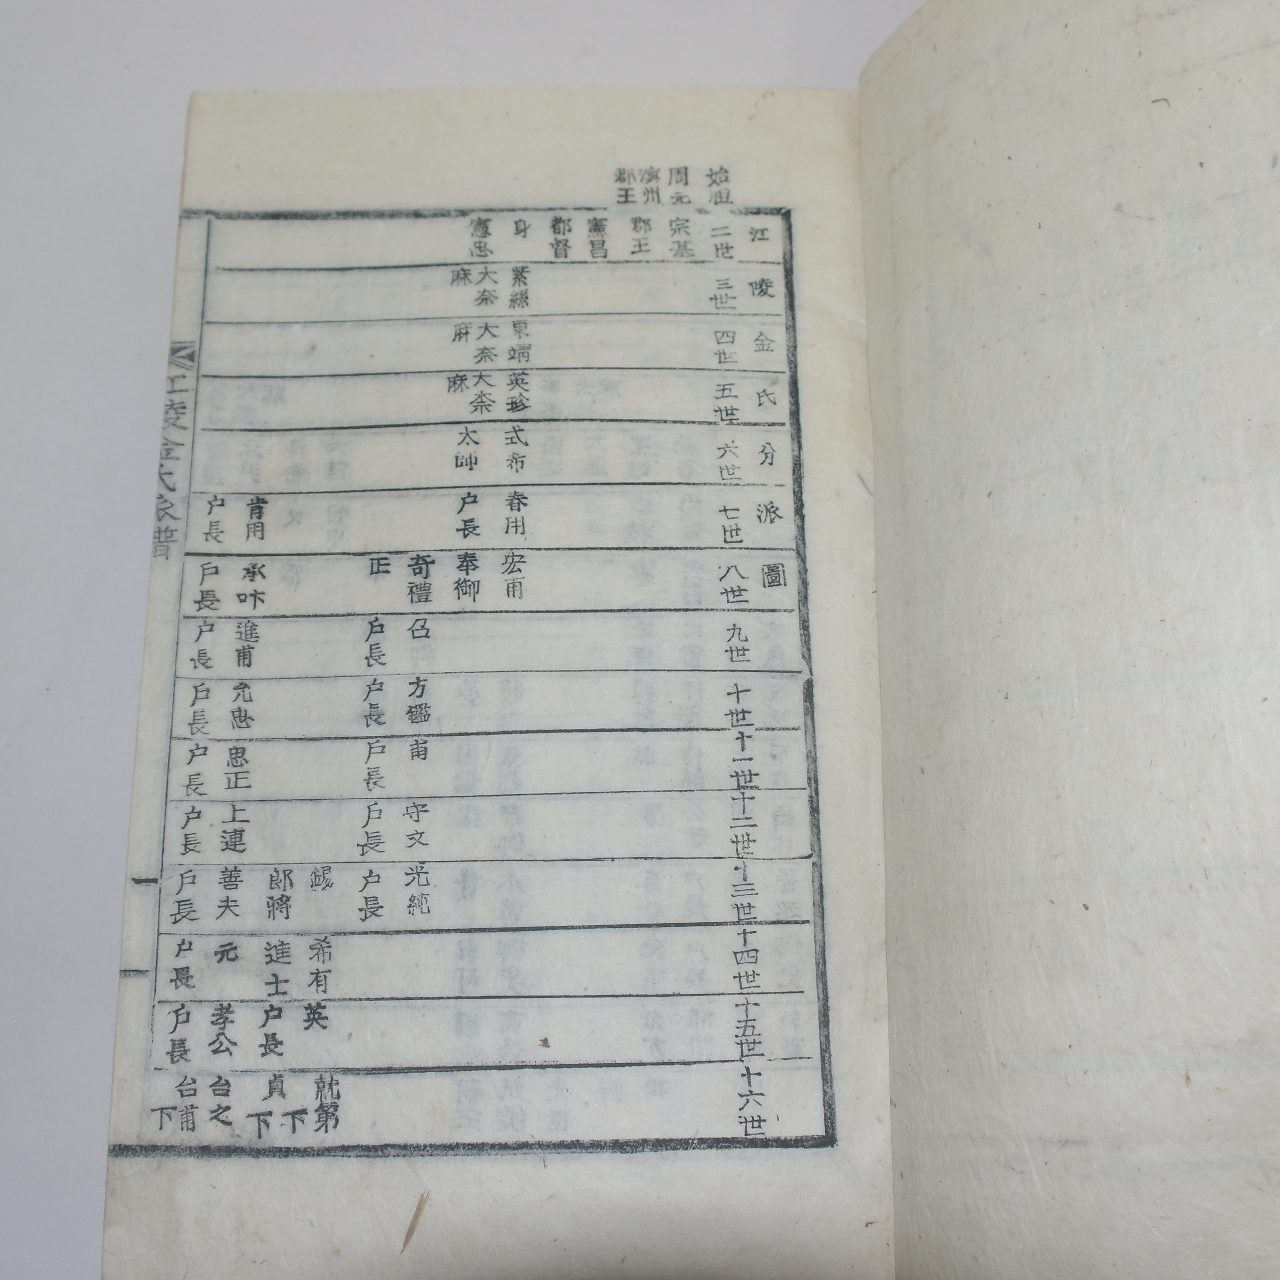 始祖
周元
溟州
郡王
江陵金氏分派圖
二世
宗基
郡王
憲昌
都督
身
憲忠
三世
紫絲
大奈
麻
四世
東靖
大奈
麻
五世
英珍
大奈
麻
六世
式希
太師
七世
春用
户長
肯用
户長
八世
宏甫
奉御
奇禮
正
承吽
戶長
九世
召
户長
進甫
户長
十世
方鑑
户長
允忠
戶長
十一世
甫
戶長
思正
户長
十二世
守文
戶長
上連
户長
十三世
光純
户長
錫
郎將
善夫
戶長
十四世
希有
進士
元
户長
十五世
英
户長
孝公
戶長
十六世
就第
下
貞
下
台之
台甫
下
江陵金氏派譜